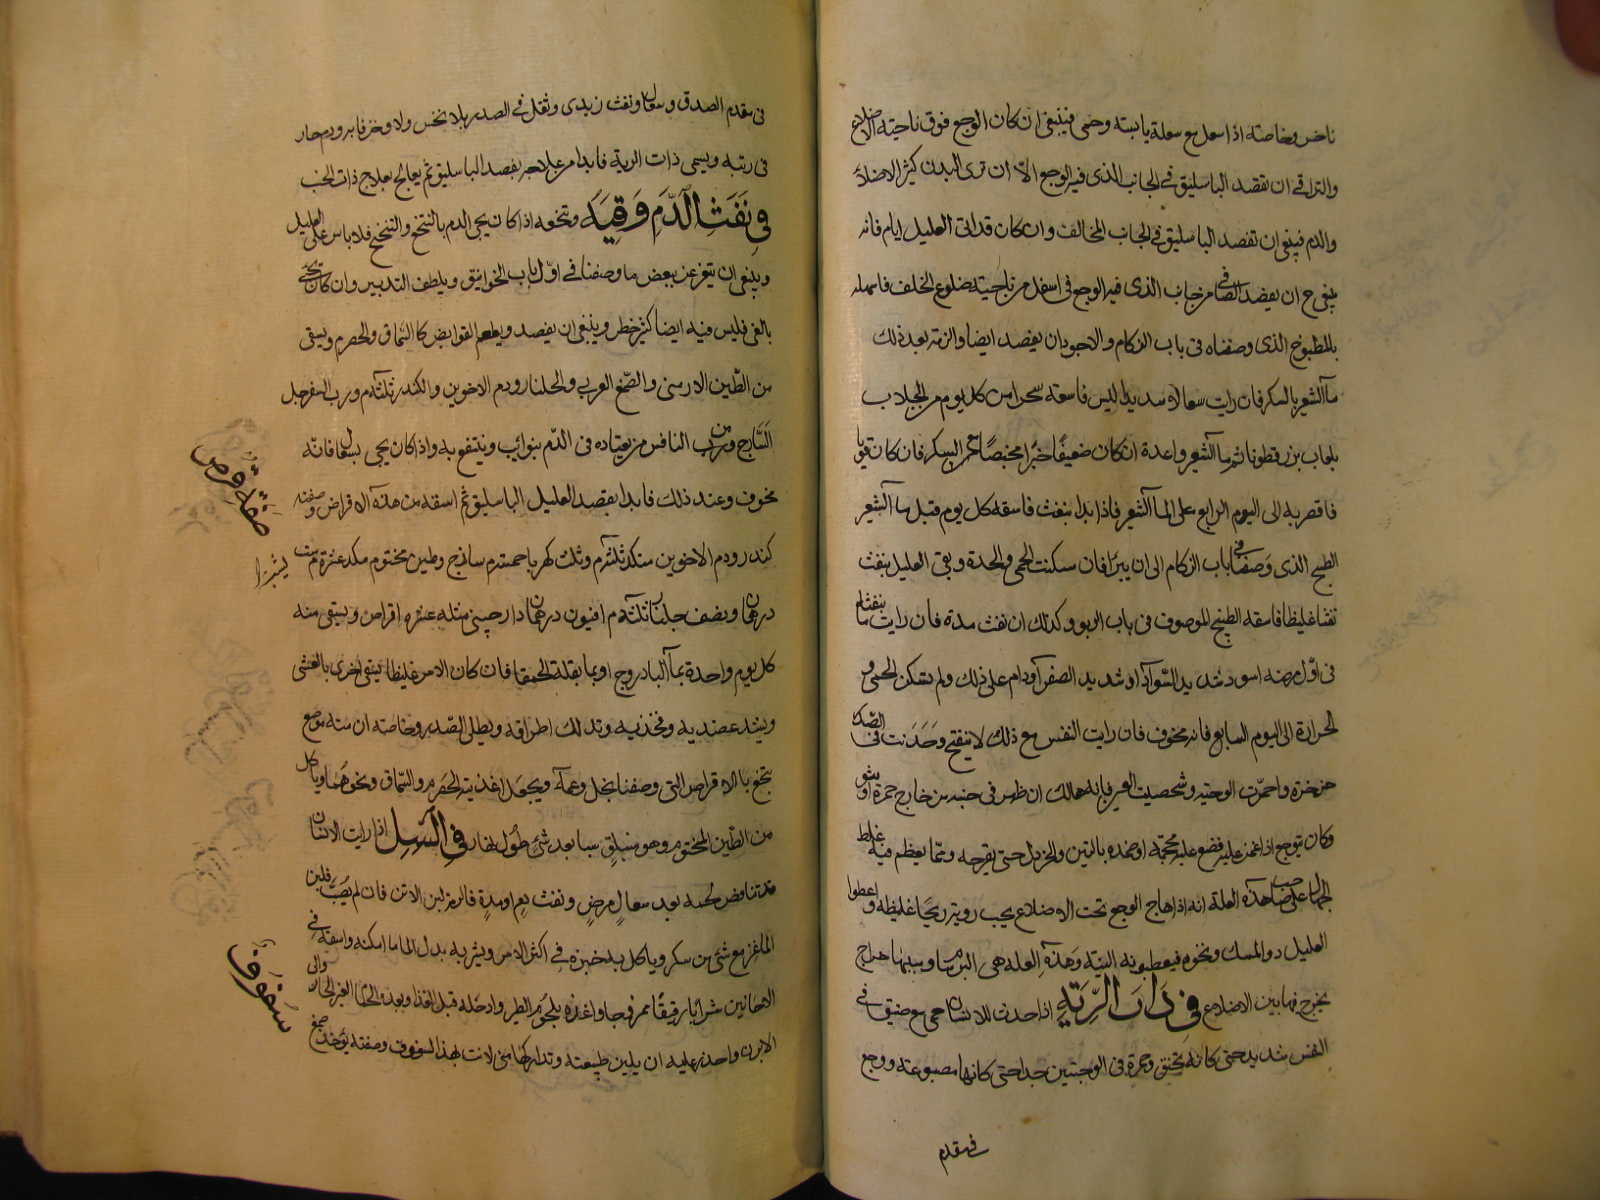 ناخس وبخاصته اذا سعل مع سعلة يابسة وحمى فينبغى ان كان الوجع فوق ناحيته الاضلاع
والتراقى ان تفصد الباسليق فى الجانب الذى فيه الوجع الا ان ترى البدن كثير الاخلاط
والدم فينبغى ان تفصد الباسليق فى الجانب المخالف وان كان قد اتى العليل ايام فانه
ينبغى ح ان يفصد الصافن من جانب الذى فيه الوجع فى اسفل من ناحيته ضلوع الخلف فاسهله
بالمطبوخ الذى وصفناه فى باب الزكام والاجود ان يفصد ايضا والزمه بعد ذلك
ماء الشعير بالسكر فان رايت سعالا شديد اليبس فاسقه سحرا من كل يوم من الجلاب
بلعاب بزر قطونا ثم ماء الشعير واعدة ان كان ضعيفا خبزا السكر فان كان قويا
فاقصر به الى اليوم الرابع على ماء الشعير فاذا بدا بنفث فاسقه كل يوم قبل ماء الشعير
الطبيخ الذى وصفنا فى باب الزكام الى ان يبرا فان سكنت الحمى والحدة وبقى العليل ينفث
نفثا غليظا فاسقه الطبيخ الموصوف فى باب الربو وكذلك ان نفث مدة فان رايت ما ينفثه
فى اول مرضه اسود شديد السواد او شديد الصفرة ودام على ذلك ولم تسكن الحمى و
الحرارة الى اليوم السابع فانه مخوف فان رايت النفس مع ذلك لا ينفتح وحدثت فى الصدر
خرخرة واحمرت الوجنة وشخصت العين فانه هالك ان ظهر فى جنبه من خارج حمرة او نتو
وكان يتوجع اذا غمز عليه فضع عليه محجمة او ضمده بالتين والخردل حتى يقرحه ومما يعظم فيه غلط
الجهال على صاحب هذه العلة انه اذا هاج الوجع تحت الاضلاع يجب رويته ريحا غليظة واعطوا
العليل دوالمسك ونحوه فيعطبونه البتة وهذه العلة هى البرسام وسببها خراج
يخرج فيما بين الاضلاع فى ذات الرية اذا حدث للانسان حمى مع ضيق فى
النفس شديد حتى كانه يختنق وحمرة فى الوجنتين جدا حتى كانها مصبوغة ووجع
فى مقدم
فى مقدم الصدر وسعال ونفث زبدى وثقل فى الصدر بلا نخس ولا وخز فابه ورم حار
فى ريته ويسمى ذات الرية فابدا من علاجه بفصد الباسليق ثم يعالج بعلاج ذات الجنب
فى نفث الدم وقيه ونحوه اذا كان يجى الدم بالتنخع والتنحنح فلا باس على العليل
وينبغى ان يتغرغر ببعض ما وصفنا فى اول باب الخوانيق ويلطف التدبير وان كان يجى
بالقى فليس فيه ايضا كثير خطر وينبغى ان يفصد ويطعم القوابض كالسماق والحصرم ويسقى
من الطين الارمنى والصمغ العربى والجلنار ودم الاخوين والكندر ثلثه م ورب السفرجل
الساذج ومن الناس من يعتاده فى الدم بنوايب وينتفع به واذا كان يجى بسعال فانه
مخوف وعند ذلك فابدا بفصد العليل الباسليق ثم اسقه من هذه الاقراض وصفته
صفة قرص
كندر ودم الاخوين وثلث كهربا خمسه م ساذج وطين مختوم
درهمان ونصف جلنار ثلثه م افيون درهمان دارچينى مثله عشره اقراص ويسقى منه
كل يوم واحدة بماء البادروج او بماء بقلة الحمقا فان كان الامر غليظا يسقى اخرى بالعشى
ويشد عضديه وفخذيه وتدلك اطرافه ويطلى الصدر وخاصته ان منه موضع
بالاقراص التى وصفنا بخل وماء ويجعل اغذيته الحصرم والسماق ونحوهما وياكل
من الطين المختوم وهو بعد شى طول نهاره فى السل اذا رايت الانسان
قد تناقص لحمه بعد سعال مرض ونفث دم او مدة فالزمه لبن الاتن فان لم يصب فلبن
الماعز مع شى من سكر وياكل به خبزه فى اكثر الامر ويشربه بدل الماء ما امكنه واسقه فى
الاحانين شرابا رقيقا ممزوجا واغذه بلحوم الطير وادخله قبل الغذا وبعده الحمام الغير الحار والى
الابزن واحذر عليه ان يلين طبيعته وتداركها متى لانت بهذا السفوف وصفته يؤخذ صمغ
سفوف